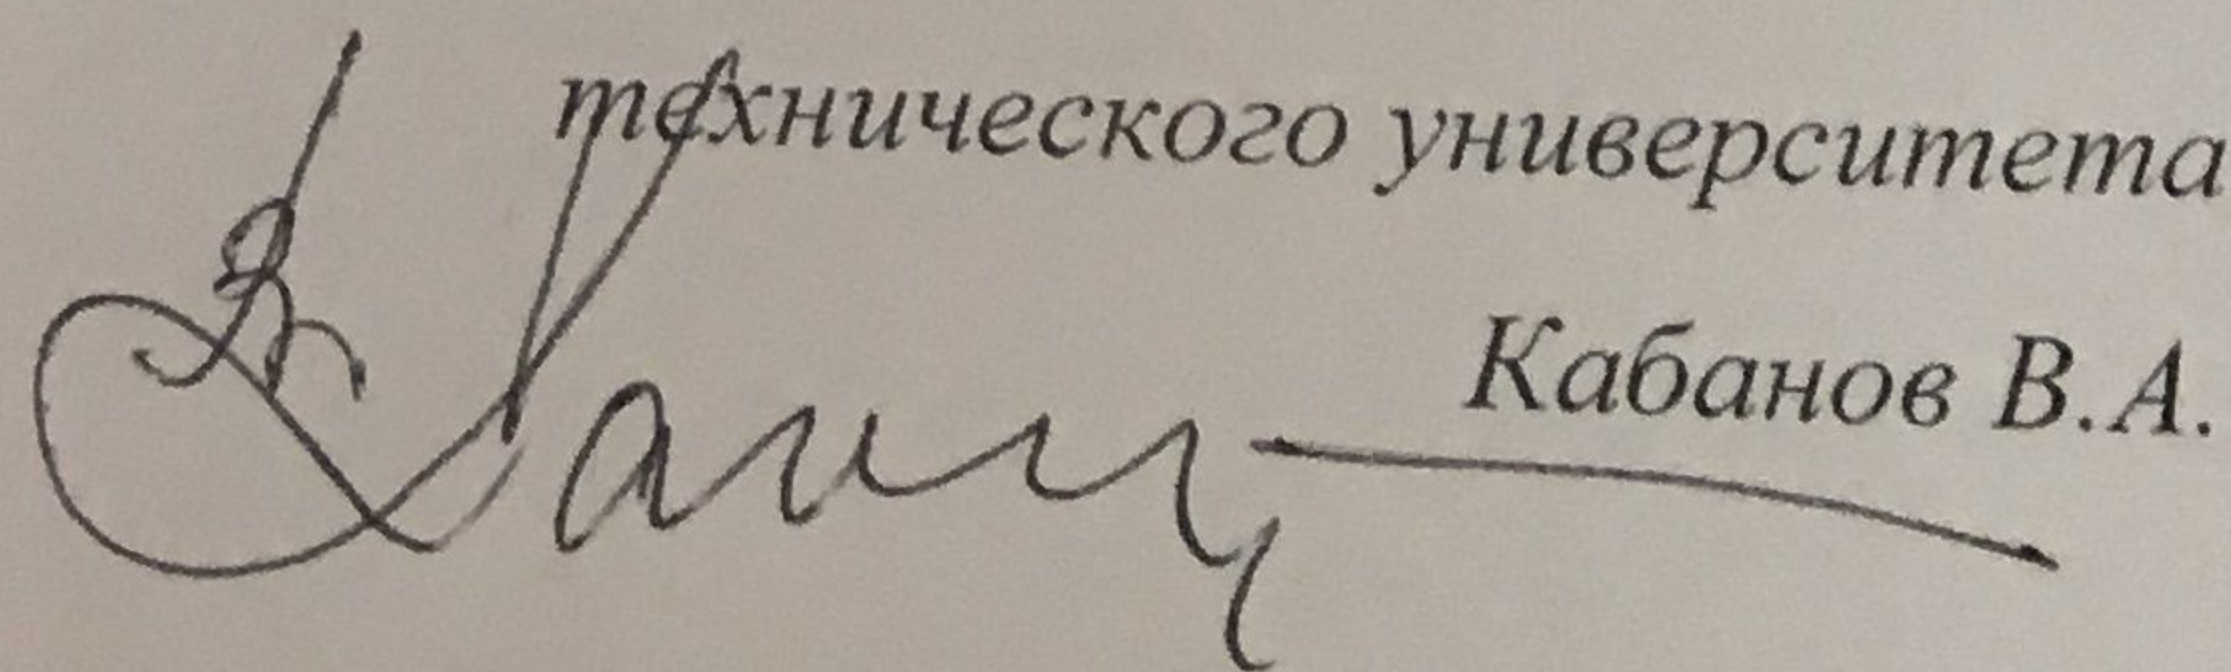 технического университета
Кабанов В.А.